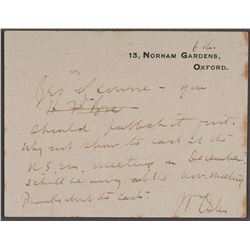 6th
13, NORHAM GARDENS,
OXFORD.
Yes of course – you
should publish it first.
Why not show the cast at the
meeting in December
I shall be away at the Nov. meeting
Thanks about the cast.
Wm Osler